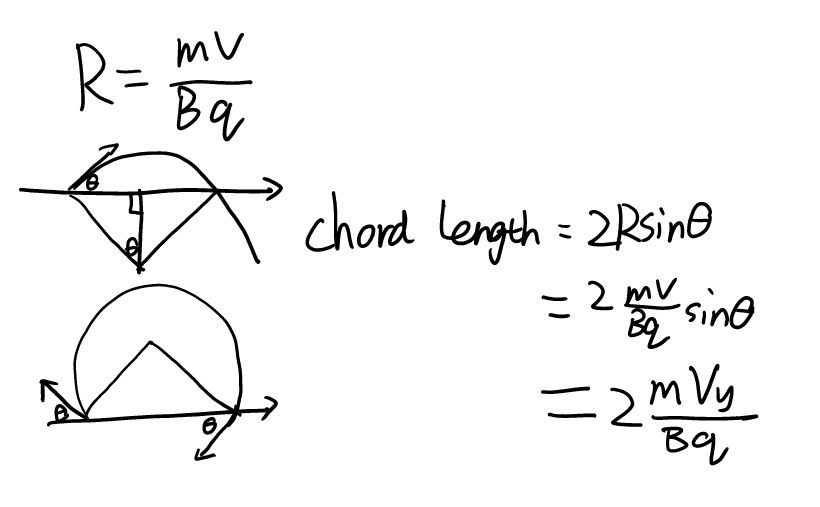 R = mV/Bq
θ
θ
chord length = 2Rsinθ
= 2 mV/Bq sinθ
θ
θ
= 2 mVy/Bq